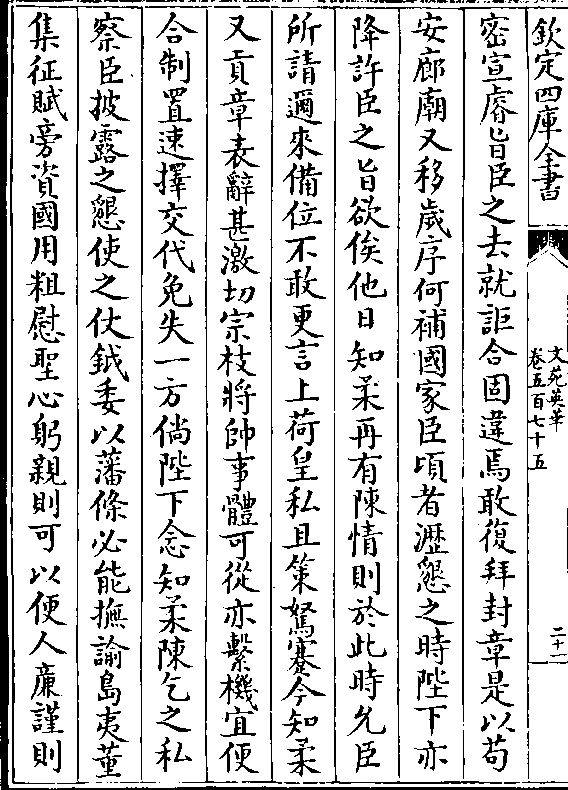 欽定四庫全書
文苑英華
卷五百七十五
二十一
密宣睿旨臣之去就詎合固違焉敢復拜封章是以苟
安廊廟又移歲序何補國家臣頃者瀝懇之時陛下亦
降許臣之旨欲俟他日知柔再有陳情則於此時允臣
所請邇來備位不敢更言上荷皇私且策駑蹇今知柔
又貢章表辭甚激切宗枝將帥事體可從亦繫機宜便
合制置速擇交代免失一方倘陛下念知柔陳乞之私
察臣披露之懇使之仗鉞委以藩條必能撫諭島夷董
集征賦旁資國用粗慰聖心躬親則可以便人廉謹則